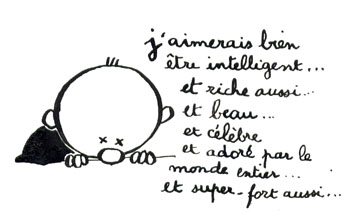 j'aimerais bien
être intelligent...
et riche aussi...
et beau...
et célèbre
et adoré par le
monde entier...
et super-fort aussi...